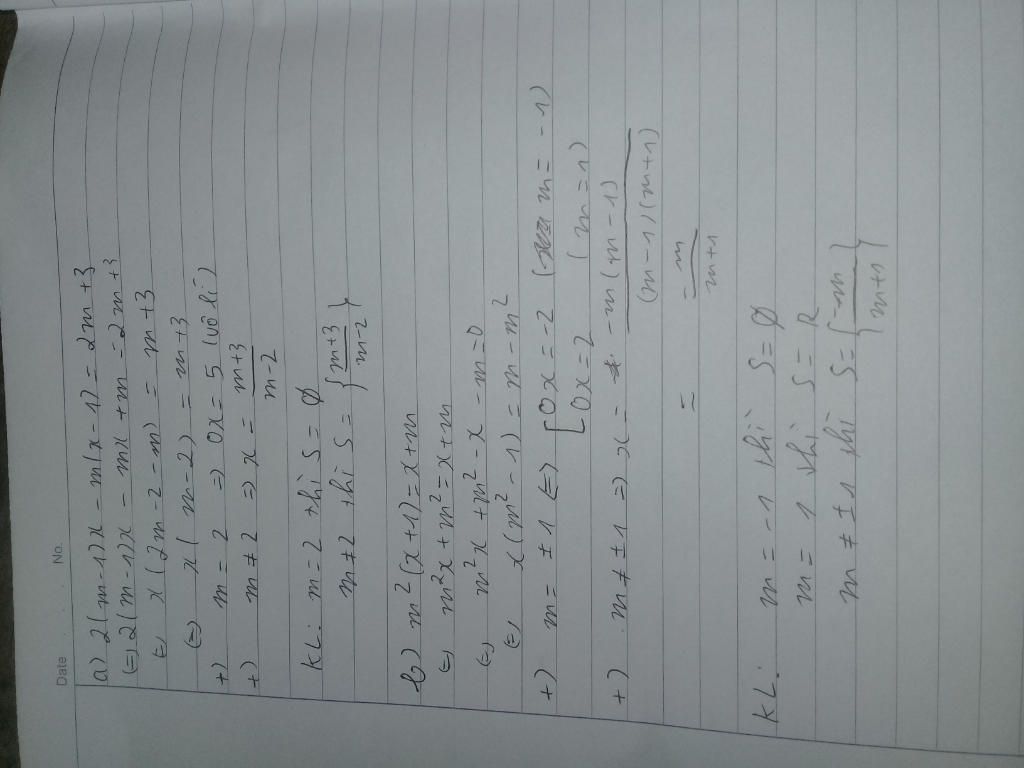 Date No.
a) 2(m-1)x - m(x-1) = 2m+3
(=) 2(m-1)x - mx + m = 2m+3
(=) x(2m-2-m) = m+3
(=) x(m-2) = m+3
+) m = 2 => 0x = 5 (vô lí)
+) m ≠ 2 => x = \frac{m+3}{m-2}
KL: m = 2 thì S = ∅
m ≠ 2 thì S = {\frac{m+3}{m-2}}
b) m²(x+1) = x+m
(=) m²x + m² = x+m
(=) m²x + m² - x - m = 0
(=) x(m²-1) = m - m²
+) m = ±1 <=> [0x = -2 (m = -1)
[0x = 2 (m = 1)
+) m ≠ ±1 => x = \frac{-m(m-1)}{(m-1)(m+1)}
= = \frac{-m}{m+1}
KL: m = -1 thì S = ∅
m = 1 thì S = R
m ≠ ±1 thì S = {\frac{-m}{m+1}}